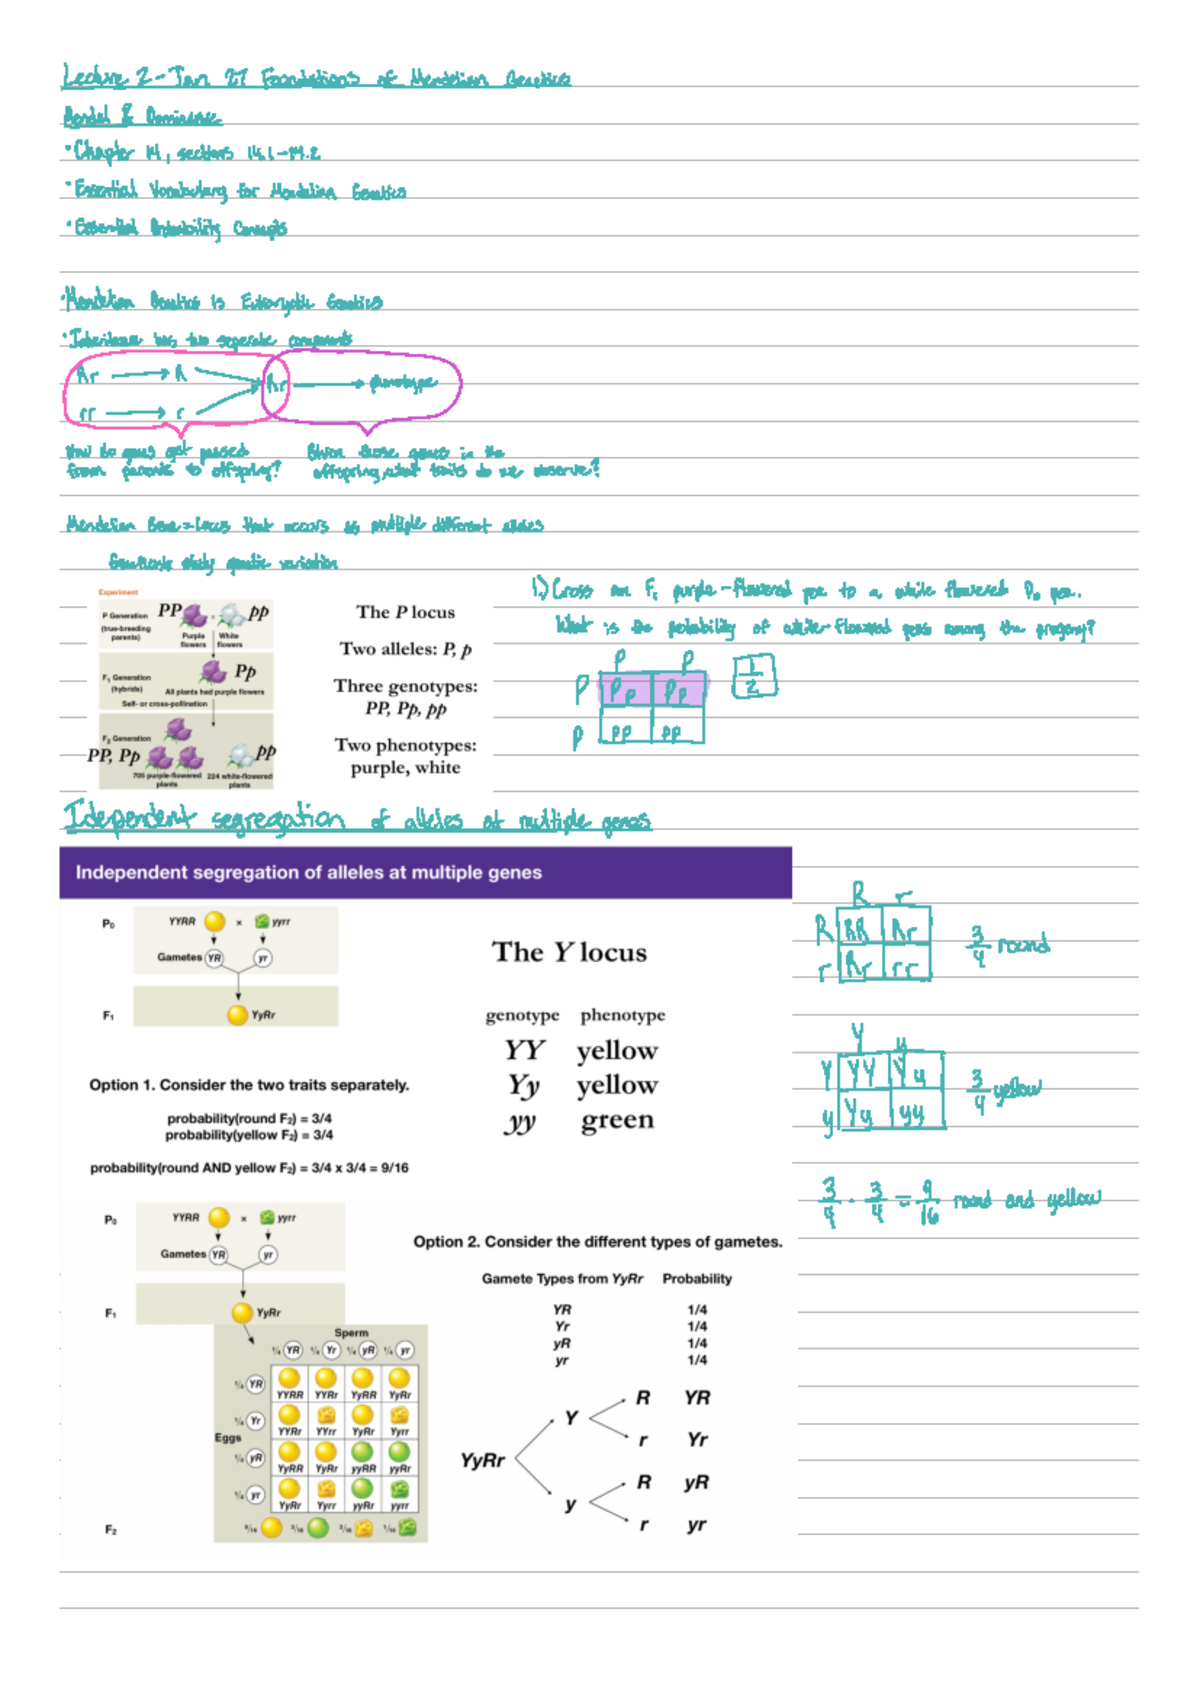 Lecture 2 - Jan 27 Foundations of Mendelian Genetics
Mendel & Dominance
• Chapter 14, sections 14.1-14.2
• Essential Vocabulary for Mendelian Genetics
• Essential Probability Concepts
• Mendelian Genetics is Eukaryotic Genetics
• Inheritance has two seperate components
Rr → R
Rr → phenotype
rr → r
How do genes get passed from parents to offspring?
Given those genes in the offspring, what traits do we observe?
Mendelian Gene = Locus that occurs as multiple different alleles
Geneticists study genetic variation
Experiment
P Generation
(true-breeding
parents)
PP
pp
Purple
flowers
White
flowers
F₁ Generation
(hybrids)
Pp
All plants had purple flowers
Self- or cross-pollination
F₂ Generation
PP, Pp
pp
705 purple-flowered
plants
224 white-flowered
plants
The P locus
Two alleles: P, p
Three genotypes:
PP, Pp, pp
Two phenotypes:
purple, white
1.) Cross an F₁ purple-flowered pea to a white flowered P₀ pea.
What is the probability of white-flowered peas among the progeny?
p p
P Pp Pp
p pp pp
1/2
Idependent segregation of alleles at multiple genes
Independent segregation of alleles at multiple genes
P₀ YYRR × yyrr
Gametes YR yr
F₁ YyRr
Option 1. Consider the two traits separately.
probability(round F₂) = 3/4
probability(yellow F₂) = 3/4
probability(round AND yellow F₂) = 3/4 x 3/4 = 9/16
The Y locus
genotype phenotype
YY yellow
Yy yellow
yy green
R r
R RR Rr
r Rr rr
3/4 round
Y y
Y YY Yy
y Yy yy
3/4 yellow
3/4 · 3/4 = 9/16 round and yellow
P₀ YYRR × yyrr
Gametes YR yr
F₁ YyRr
Sperm
¼ YR ¼ Yr ¼ yR ¼ yr
Eggs
¼ YR YYRR YYRr YyRR YyRr
¼ Yr YYRr YYrr YyRr Yyrr
¼ yR YyRR YyRr yyRR yyRr
¼ yr YyRr Yyrr yyRr yyrr
F₂ 9/16 3/16 3/16 1/16
Option 2. Consider the different types of gametes.
Gamete Types from YyRr Probability
YR 1/4
Yr 1/4
yR 1/4
yr 1/4
R YR
Y
r Yr
YyRr
R yR
y
r yr